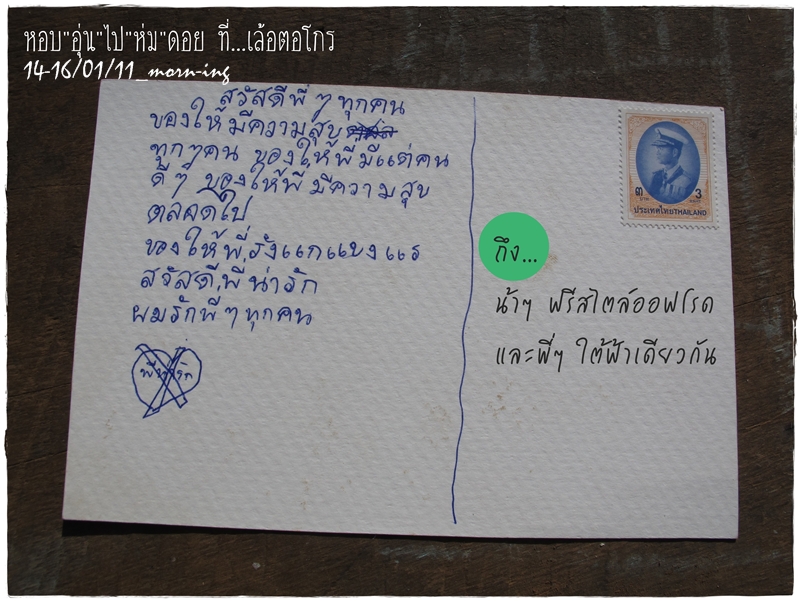 หอบ"อุ่น"ไป"ห่ม"ดอย ที่...เล้อตอโกร
14-16/01/11_morn-ing
สวัสดีพี่ๆทุกคน
ของให้มีความสุข
ทุกๆคน ของให้พี่มีแต่คน
ดีๆ ของให้พี่มีความสุข
ตลอดไป
ของให้พี่รังแกแขงแร
สวัสดีพี่น่ารัก
ผมรักพี่ๆทุกคน
พี่น่ารัก
๓ บาท 3
ประเทศไทยTHAILAND
ถึง...
น้าๆ ฟรีสไตล์ออฟโรด
และพี่ๆ ใต้ฟ้าเดียวกัน